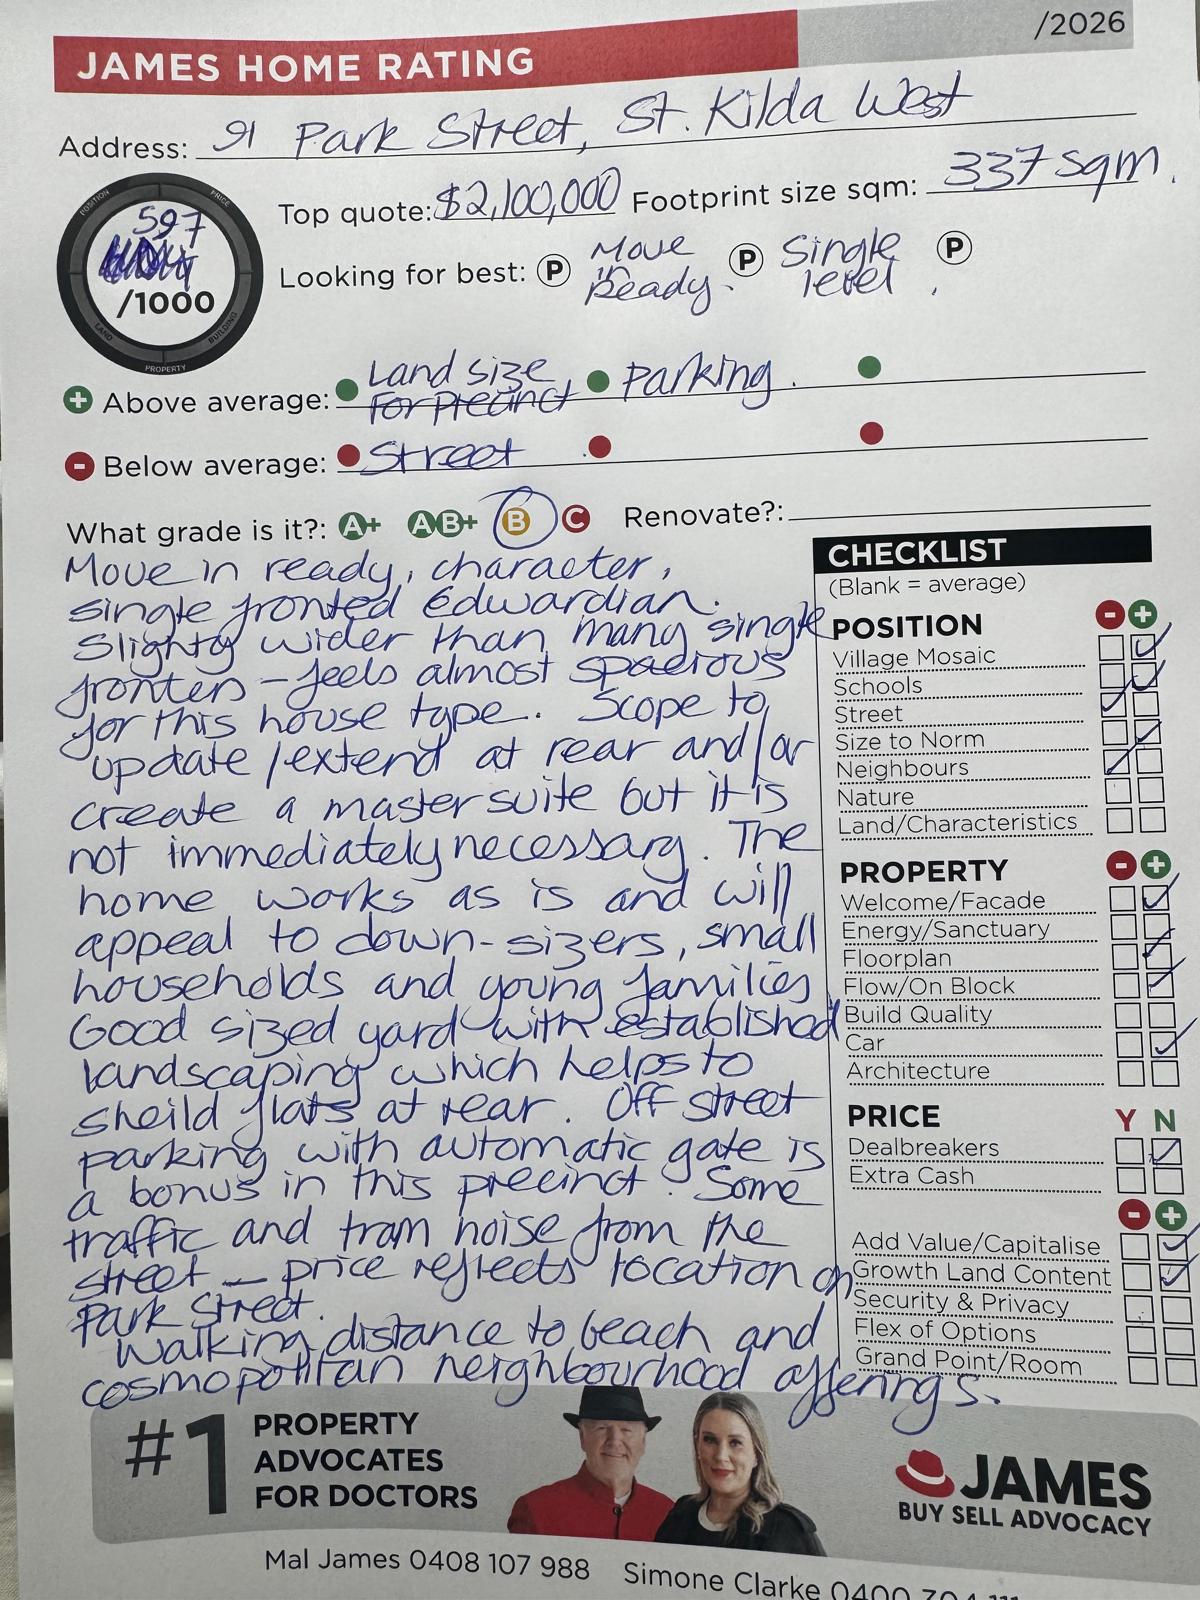 /2026
JAMES HOME RATING
Address: 91 Park Street, St. Kilda West
POSITION PRICE
597
/1000
LAND BUILDING
PROPERTY
Top quote: $2,100,000 Footprint size sqm: 337 sqm.
Looking for best: P Move in Ready. P Single level. P
+ Above average: Land size for precinct Parking.
- Below average: Street
What grade is it?: A+ AB+ B C Renovate?:
Move in ready, character,
single fronted Edwardian.
Slighty wider than many single
fronters - feels almost spacious
for this house type. Scope to
update/extend at rear and/or
create a master suite but it is
not immediately necessary. The
home works as is and will
appeal to down-sizers, small
households and young families
Good sized yard with established
landscaping which helps to
sheild flats at rear. Off street
parking with automatic gate is
a bonus in this precinct. Some
traffic and tram noise from the
street - price reflects location on
Park Street.
Walking distance to beach and
cosmopolitan neighbourhood offerings.
CHECKLIST
(Blank = average)
POSITION - +
Village Mosaic
Schools
Street
Size to Norm
Neighbours
Nature
Land/Characteristics
PROPERTY - +
Welcome/Facade
Energy/Sanctuary
Floorplan
Flow/On Block
Build Quality
Car
Architecture
PRICE Y N
Dealbreakers
Extra Cash
- +
Add Value/Capitalise
Growth Land Content
Security & Privacy
Flex of Options
Grand Point/Room
#1 PROPERTY
ADVOCATES
FOR DOCTORS
JAMES
BUY SELL ADVOCACY
Mal James 0408 107 988 Simone Clarke 0400